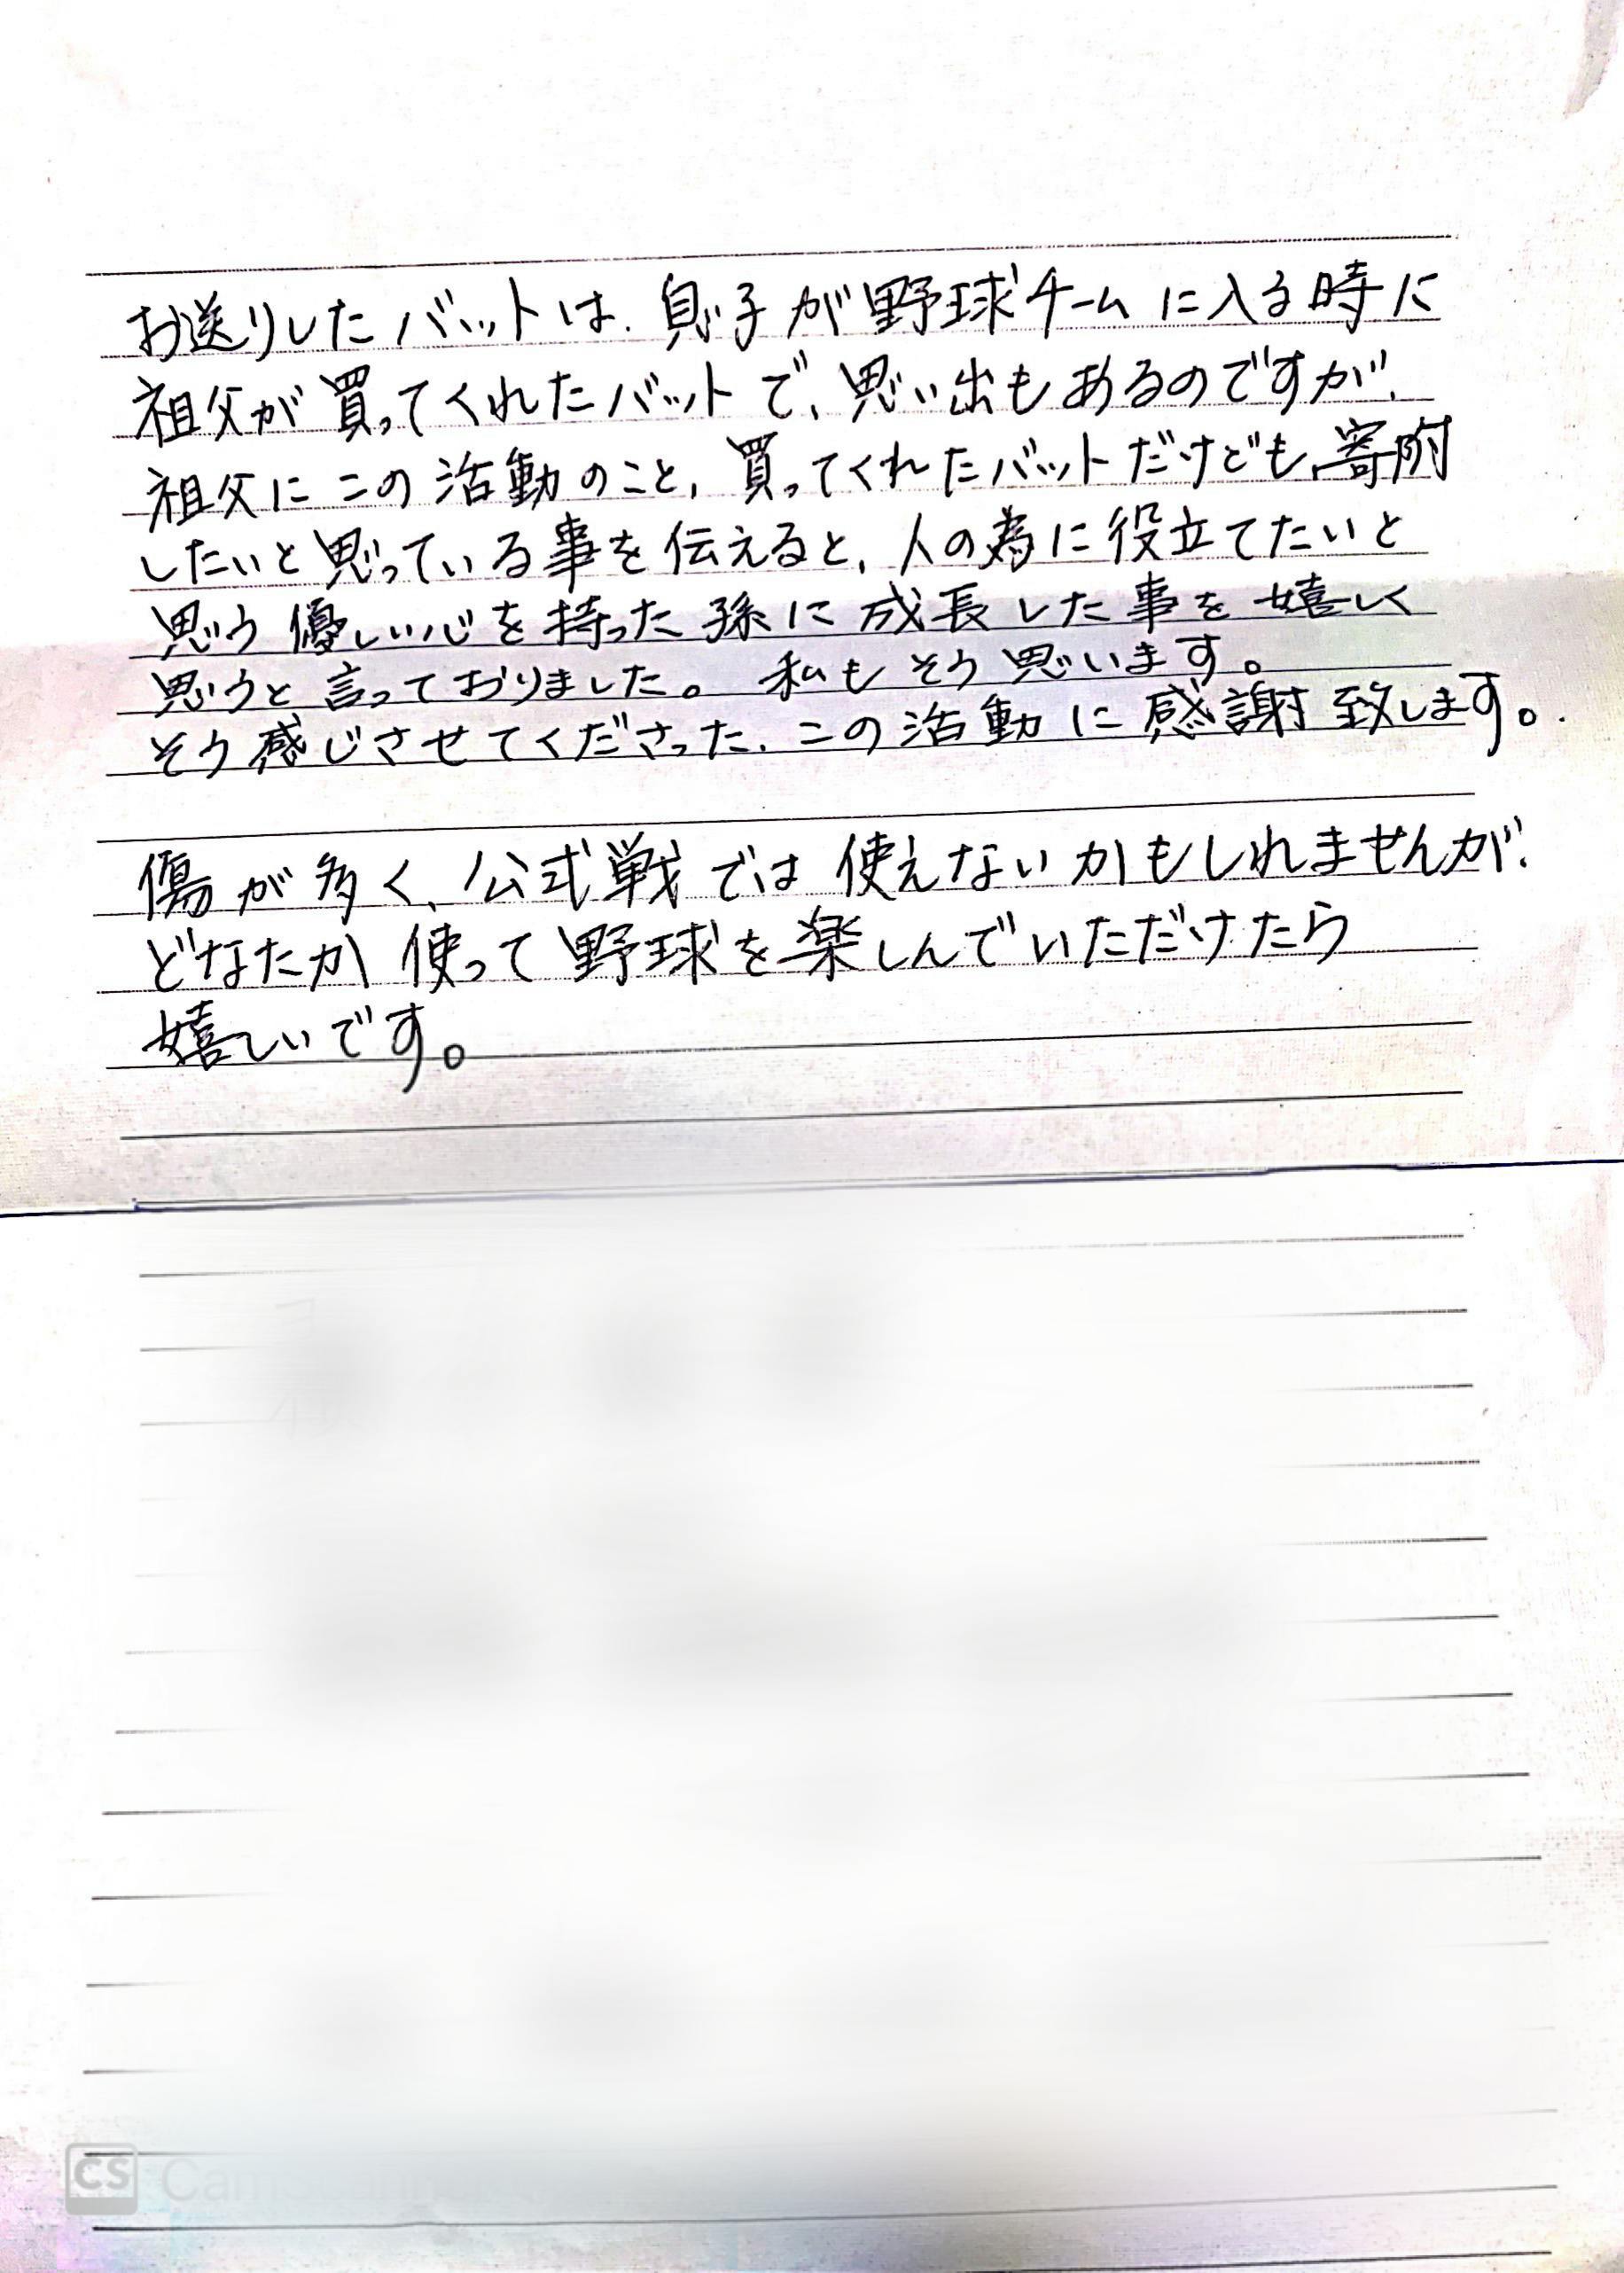 お送りしたバットは、息子が野球チームに入る時に
祖父が買ってくれたバットで、思い出もあるのですが、
祖父にこの活動のこと、買ってくれたバットだけども、寄附
したいと思っている事を伝えると、人の為に役立てたいと
思う優しい心を持った孫に成長した事を嬉しく
思うと言っておりました。私もそう思います。
そう感じさせてくださった、この活動に感謝致します。
傷が多く、公式戦では使えないかもしれませんが、
どなたか使って野球を楽しんでいただけたら
嬉しいです。
CS CamScanner